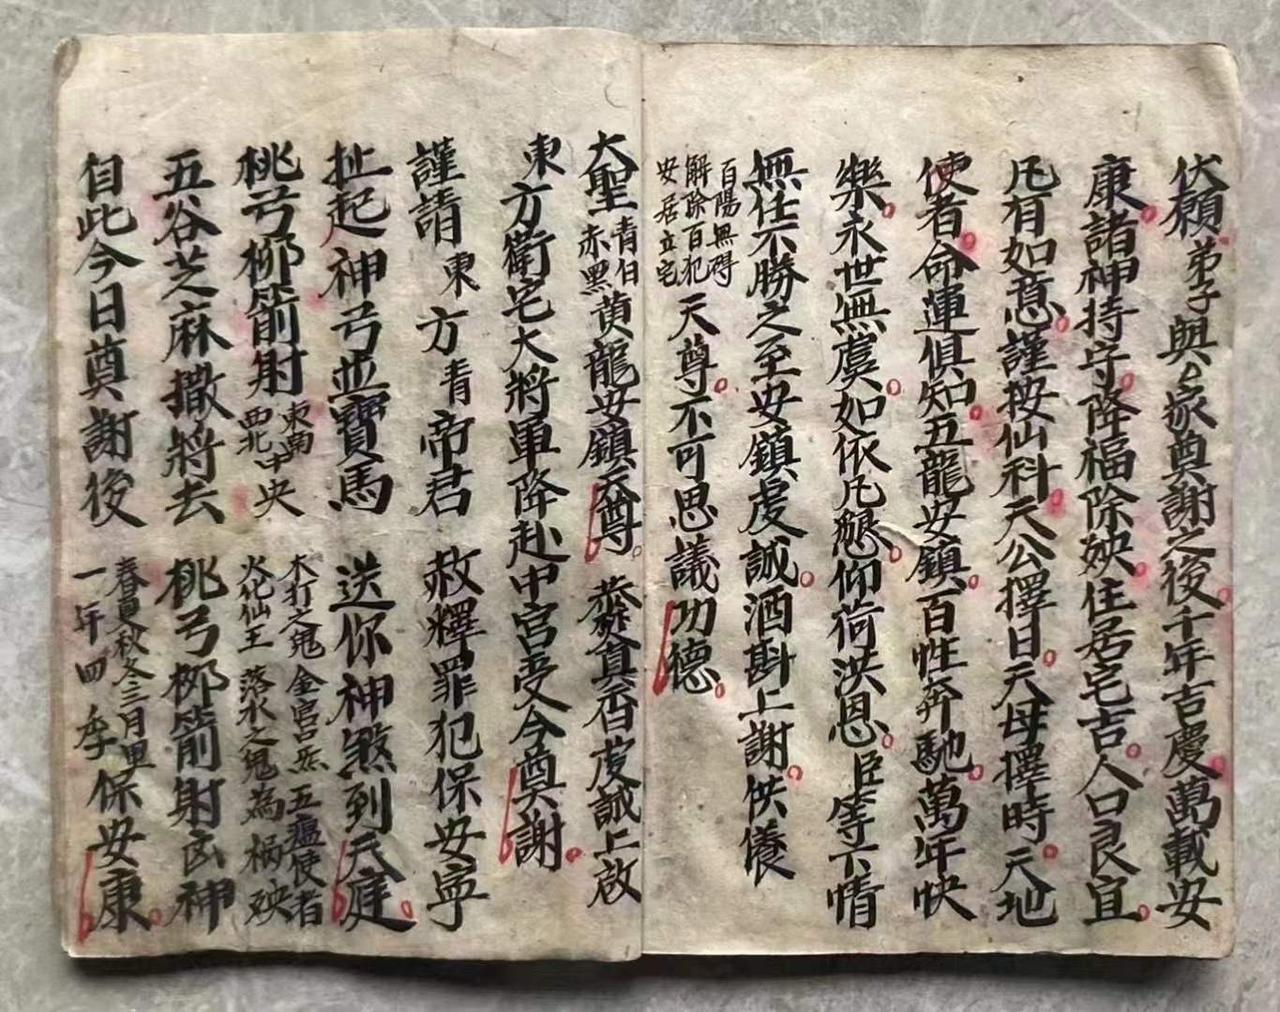 伏願弟子與乞家奠謝之後千年吉慶萬載安
康諸神持守降福除殃住居宅吉人口良宜
凡有如意謹按仙科天公擇日天母擇時天地
使者命運俱知五龍安鎮百性奔馳萬年快
樂永世無虞如依凡懇仰荷洪恩臣等下情
無任不勝之至安鎮虔誠酒斟上謝供養
百陽無碍
解除百犯
安居立宅
天尊不可思議功德
大聖青白赤黑黃龍安鎮天尊 恭叅真香虔誠上啟
東方衛宅大將軍降赴中宮受今奠謝
謹請東方青帝君 赦釋罪犯保安寧
扯起神弓並寶馬 送你神煞到天庭
桃弓柳箭射東南西北中央
木打之鬼 金宮宮炁 五瘟使者
火化仙王 落水之鬼 為禍殃
五谷芝麻撒將去 桃弓柳箭射凶神
自此今日奠謝後
春夏秋冬三月里
一年四季保安康